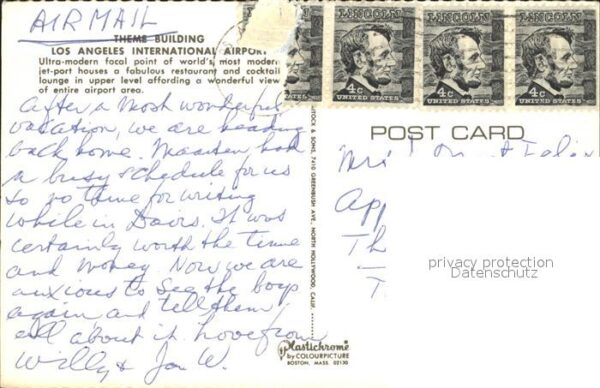 AIR MAIL
THEME BUILDING
LOS ANGELES INTERNATIONAL AIRPORT
Ultra-modern focal point of world's most modern
jet-port houses a fabulous restaurant and cocktail
lounge in upper level affording a wonderful view
of entire airport area.
After a most wonderful
vacation, we are heading
back home. Maarten had
a busy schedule for us
so no time for writing
while in Davis. It was
certainly worth the time
and money. Now we are
anxious to see the boys
again and tell them
all about it. Love from
Willy & Jon W.
LINCOLN
4c
UNITED STATES
LINCOLN
4c
UNITED STATES
LINCOLN
4c
UNITED STATES
UNITED STATES
& SONS, 7410 GREENBUSH AVE., NORTH HOLLYWOOD, CALIF.
POST CARD
App
Th
T
privacy protection
Datenschutz
Plastichrome
by COLOURPICTURE
BOSTON, MASS. 02130